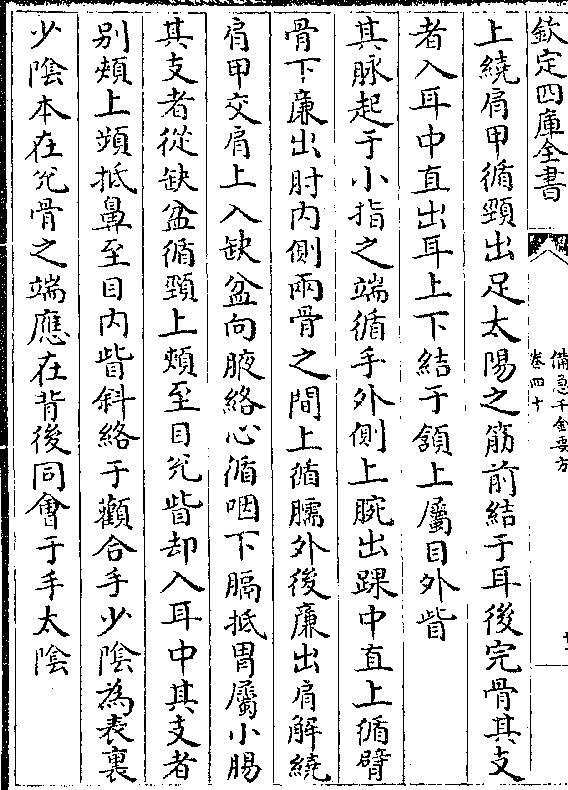 欽定四庫全書
備急千金要方
卷四十
上繞肩甲循頸出足太陽之筋前結于耳後完骨其支
者入耳中直出耳上下結于頷上屬目外眥
其脉起于小指之端循手外側上腕出踝中直上循臂
骨下廉出肘内側兩骨之間上循臑外後廉出肩解繞
肩甲交肩上入缺盆向腋絡心循咽下膈抵胃屬小腸
其支者從缺盆循頸上頰至目兊眥却入耳中其支者
别頰上䪼抵鼻至目内眥斜絡于顴合手少陰為表裏
少陰本在兊骨之端應在背後同會于手太陰